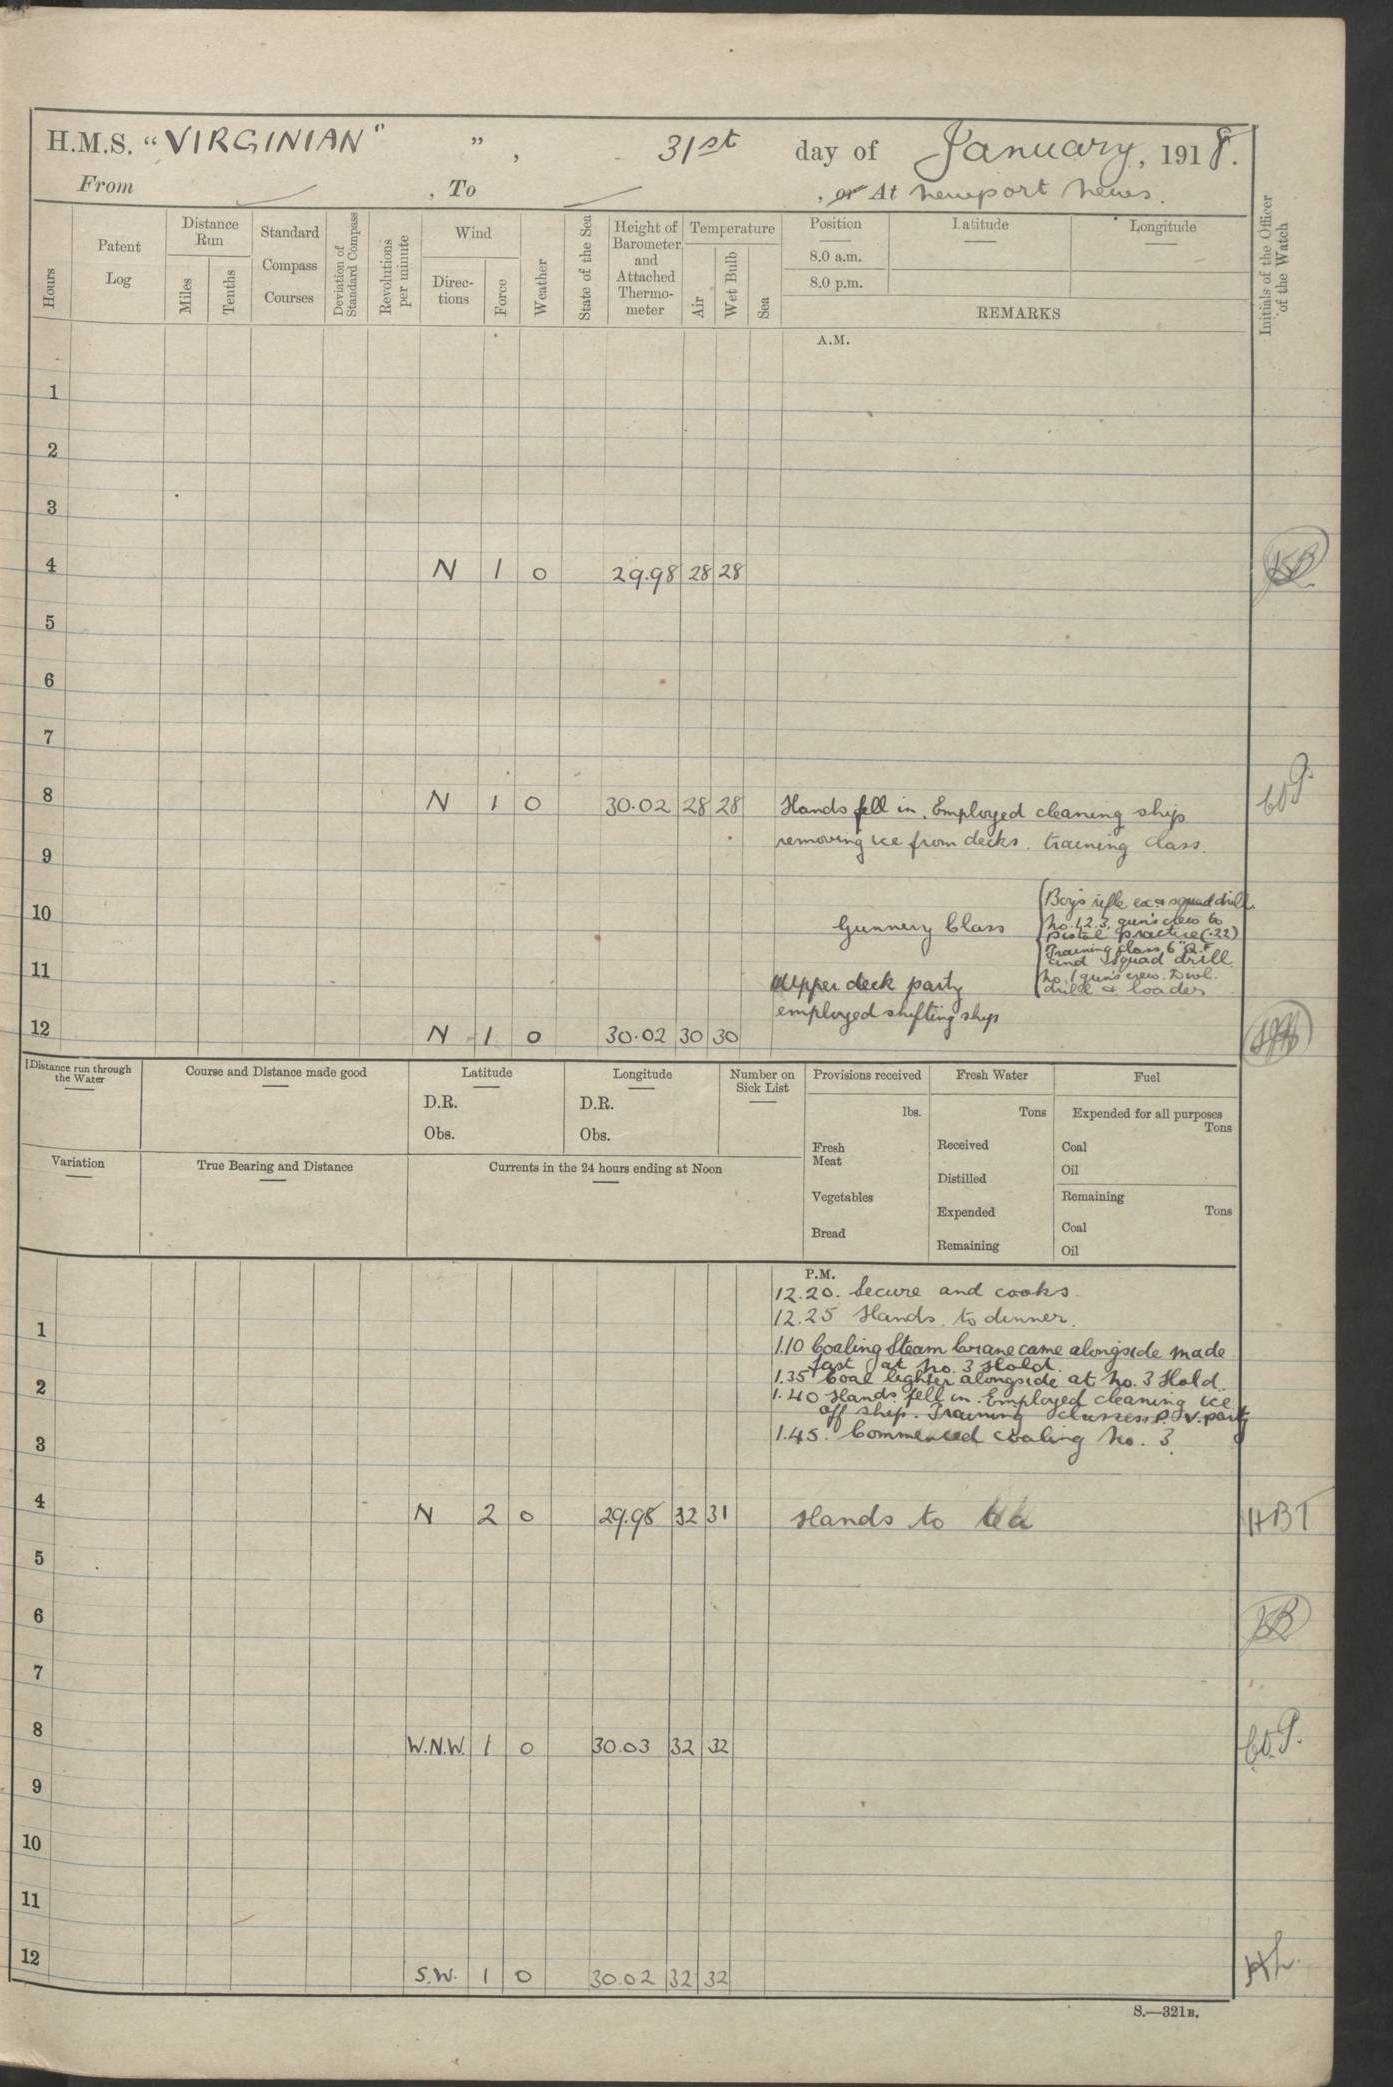 H.M.S. "VIRGINIAN" ", 31st day of January, 1918.
From , To , or At Newport News.
Hours
Patent Log
Distance Run
Miles
Tenths
Standard Compass Courses
Deviation of Standard Compass
Revolutions per minute
Wind
Directions
Force
Weather
State of the Sea
Height of Barometer and Attached Thermometer
Temperature
Air
Wet Bulb
Sea
Position
8.0 a.m.
8.0 p.m.
Latitude
Longitude
REMARKS
Initials of the Officer of the Watch
A.M.
1
2
3
4 N 1 0 29.98 28 28
5
6
7
8 N 1 0 30.02 28 28 Hands fell in. Employed cleaning ship
removing ice from decks. training class.
9
10 Gunnery Class
Boys rifle ex & squad drill
No. 1,2,3, gun's crew to
pistol practice (.22)
Training class 6" Q.F
and squad drill
No. 1 gun's crew. Devl.
drill & loader
11 Upper deck party
employed shifting ship
12 N 1 0 30.02 30 30
Distance run through the Water
Course and Distance made good
Latitude
D.R.
Obs.
Longitude
D.R.
Obs.
Number on Sick List
Provisions received
lbs.
Fresh Meat
Vegetables
Bread
Fresh Water
Tons
Received
Distilled
Expended
Remaining
Fuel
Expended for all purposes
Tons
Coal
Oil
Remaining
Tons
Coal
Oil
Variation
True Bearing and Distance
Currents in the 24 hours ending at Noon
P.M.
12.20. Secure and cooks.
12.25 Hands to dinner.
1 1.10 Coaling Steam Crane came alongside made
fast at No. 3 Hold.
2 1.35 Coal lighter alongside at No. 3 Hold.
1.40 Hands fell in. Employed cleaning ice
off ship. Training classes P.V. party
3 1.45. Commenced coaling No. 3.
4 N 2 0 29.98 32 31 Hands to tea HBT
5
6
7
8 W.N.W. 1 0 30.03 32 32
9
10
11
12 S.W. 1 0 30.02 32 32
S.—321B.